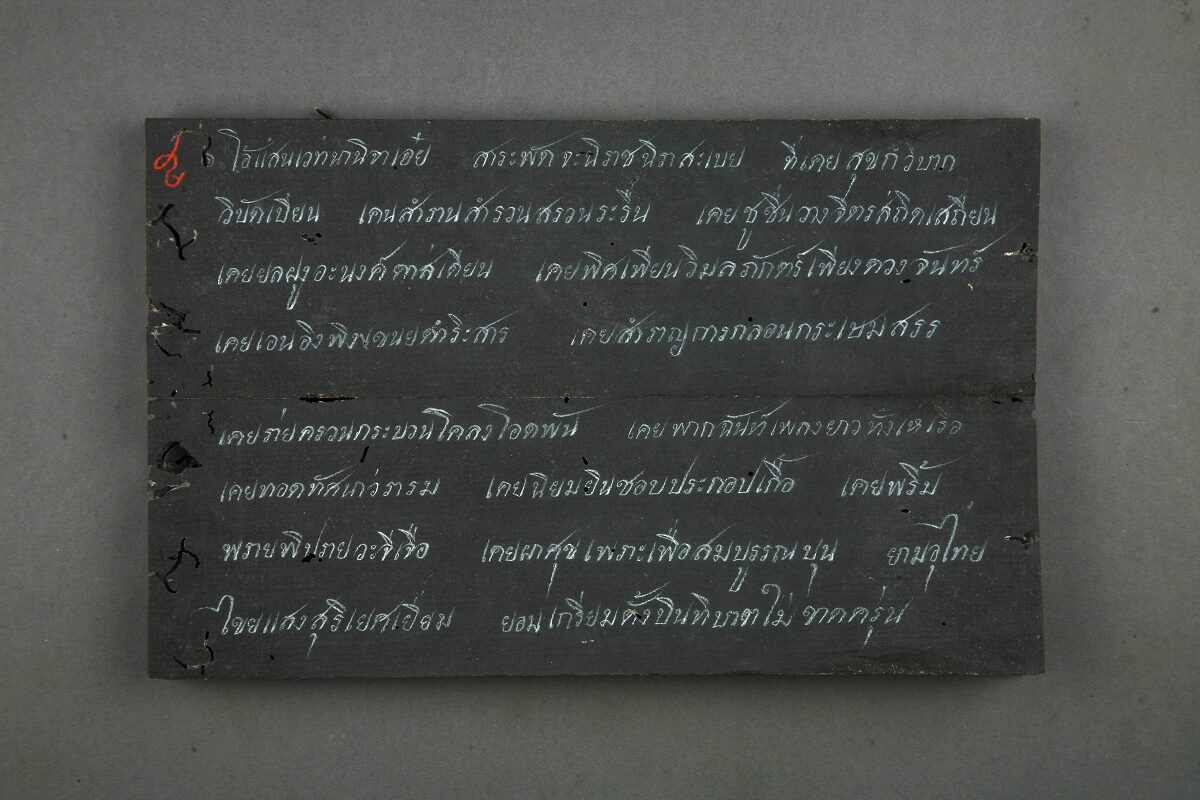 โอ้แสนเวทนานิจาเอ๋ย สาระพัดจะนิราชนิราสะเบย ที่เคยสุขก็วิบาก
วิบัดเบียน เคนสำราน สำรวนสรวนระรื่น เคยชูชื่นวางจิตรสถิตเสถียน
เคยยลฝูงอะนงค์ดาส่เดียน เคยพิศเพียนวิมลภักตร์เพียงดวงจันทร์
เคยเอนอิงพิงเขนยดำริะสาร เคยสำราญการกลอนกระเษมสรร
เคยร่ายครวนกระบวนโคลงโอดพัน เคยพากฉันท์เพลงยาวทั้งเห่เรือ
เคยทอดทัศเกว่รารม เคยนิยมยินชอบประกอบเกื้อ เคยพริ้ม
พรายพิปรายวะจีเจือ เคยผาศุขเพราะเพื่อสมบูรรณบุน ยามอุไทย
ไขยแสงสุริเยศเยี่ยม ยอมเกรียมตั้งบินทิบาตไม่ขาดครุ่น